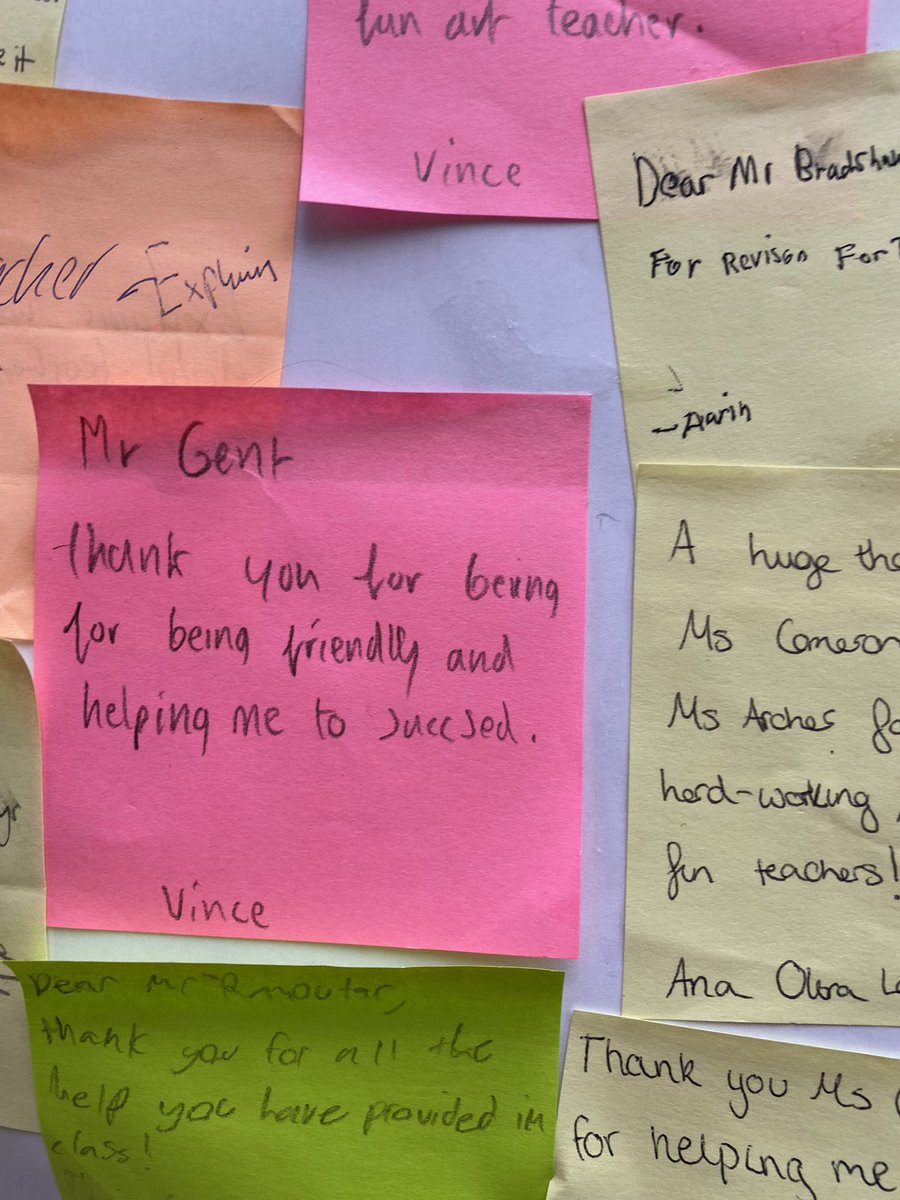 e it
fun art teacher.
Vince
Dear Mr Bradshaw
For Revison For
- Aarin
acher - Explain
Mr Gent
thank you for being
for being friendly and
helping me to succsed.
Vince
A huge tha
Ms Cameron
Ms Arches fo
hard-working
fun teachers!
Ana
Dear Mr
thank you for all the
help you have provided in
class!
Thank you Ms
for helping me